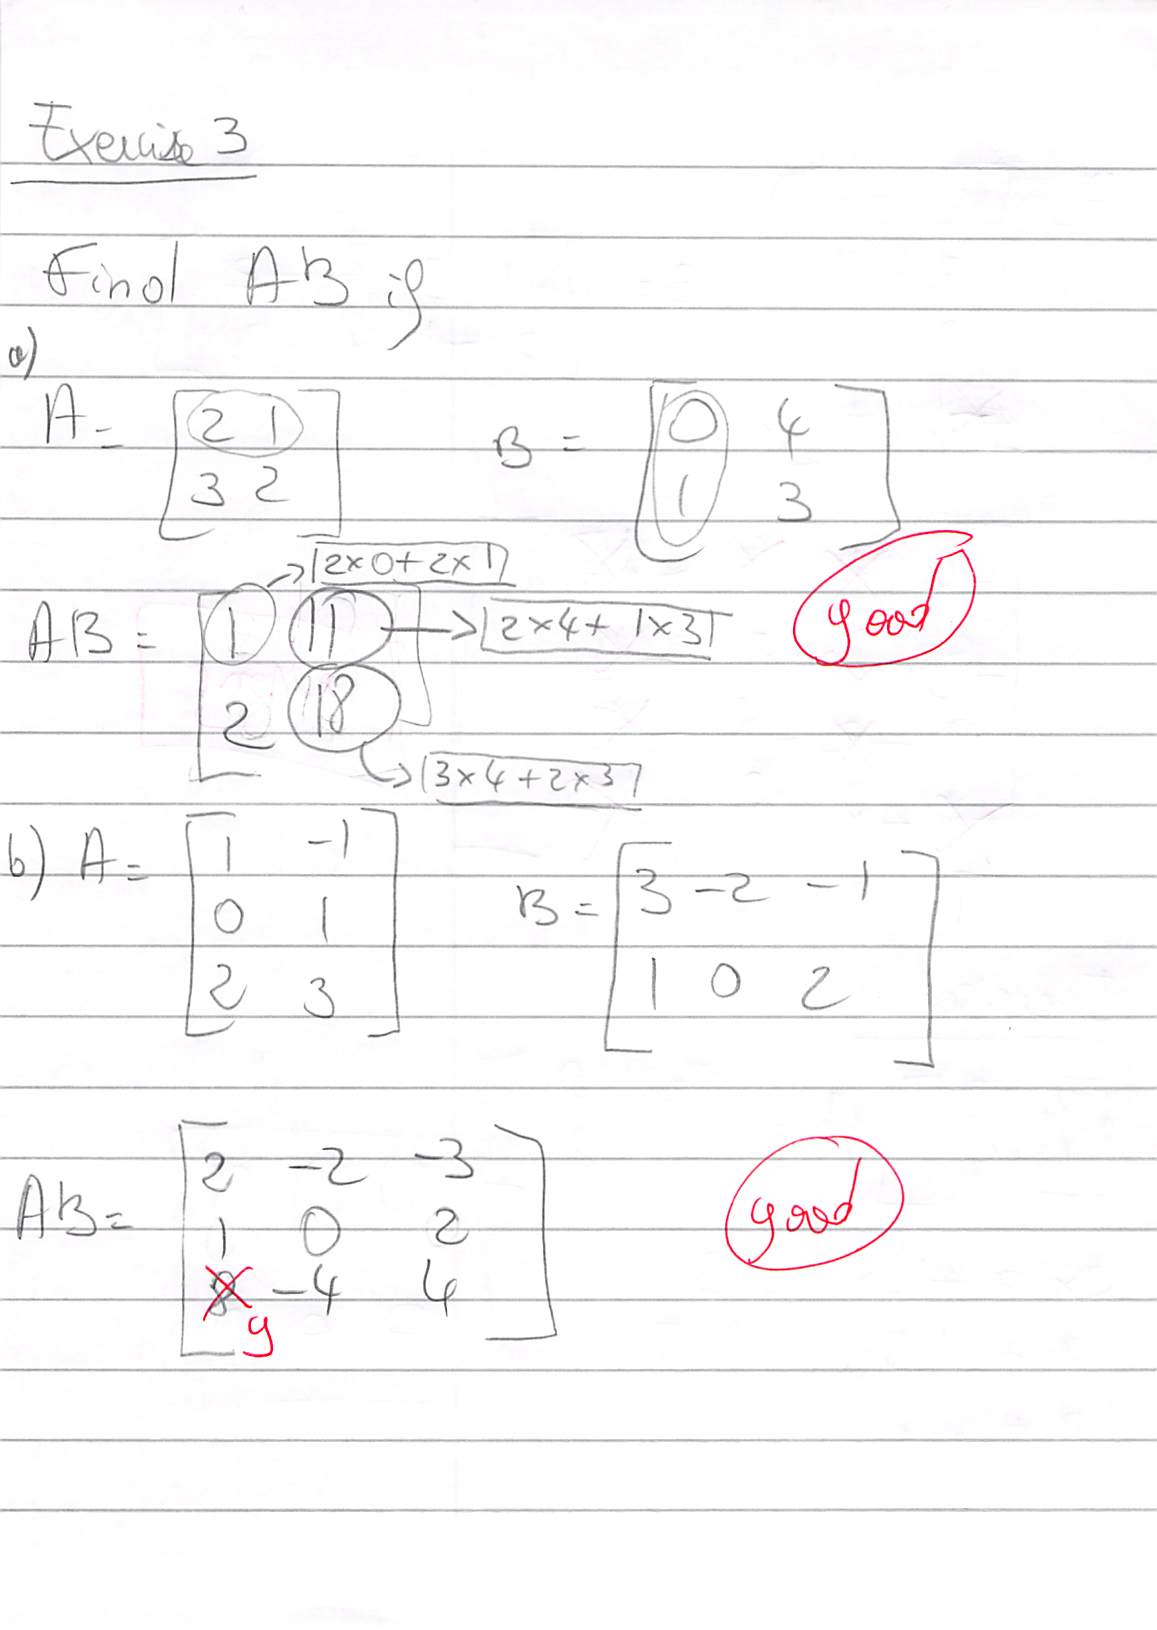 Exercise 3
Find AB if
a)
A = [2 1
3 2]
B = [0 4
1 3]
2×0+2×1
AB = [1 11
2 18]
2×4+1×3
good
3×4+2×3
b) A = [1 -1
0 1
2 3]
B = [3 -2 -1
1 0 2]
AB = [2 -2 -3
1 0 2
8 -4 4]
9
good